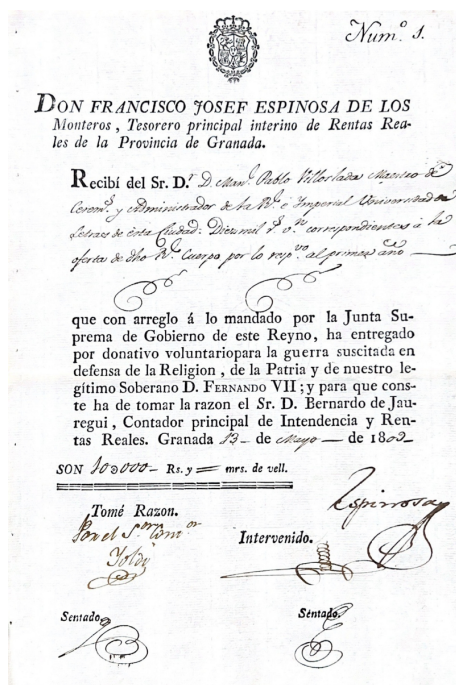 Num.º 1.
DON FRANCISCO JOSEF ESPINOSA DE LOS
Monteros, Tesorero principal interino de Rentas Rea-
les de la Provincia de Granada.
Recibí del Sr. D.r D. Man.l Pablo Villoslada Maestro de
Cerem.s y Administrador de la R.l é Imperial Universidad de
Letras de esta Ciudad: Diez mil r.s v.n correspondientes á la
oferta de dho R.l Cuerpo por lo resp.vo al primer año
que con arreglo á lo mandado por la Junta Su-
prema de Gobierno de este Reyno, ha entregado
por donativo voluntariopara la guerra suscitada en
defensa de la Religion, de la Patria y de nuestro le-
gítimo Soberano D. FERNANDO VII; y para que cons-
te ha de tomar la razon el Sr. D. Bernardo de Jau-
regui, Contador principal de Intendencia y Ren-
tas Reales. Granada 13 de Mayo de 180
SON 10000 Rs. y = mrs. de vell.
Espinosa
Tomé Razon.
Por el S.or Con.or
Intervenido.
Sentado
Sentado